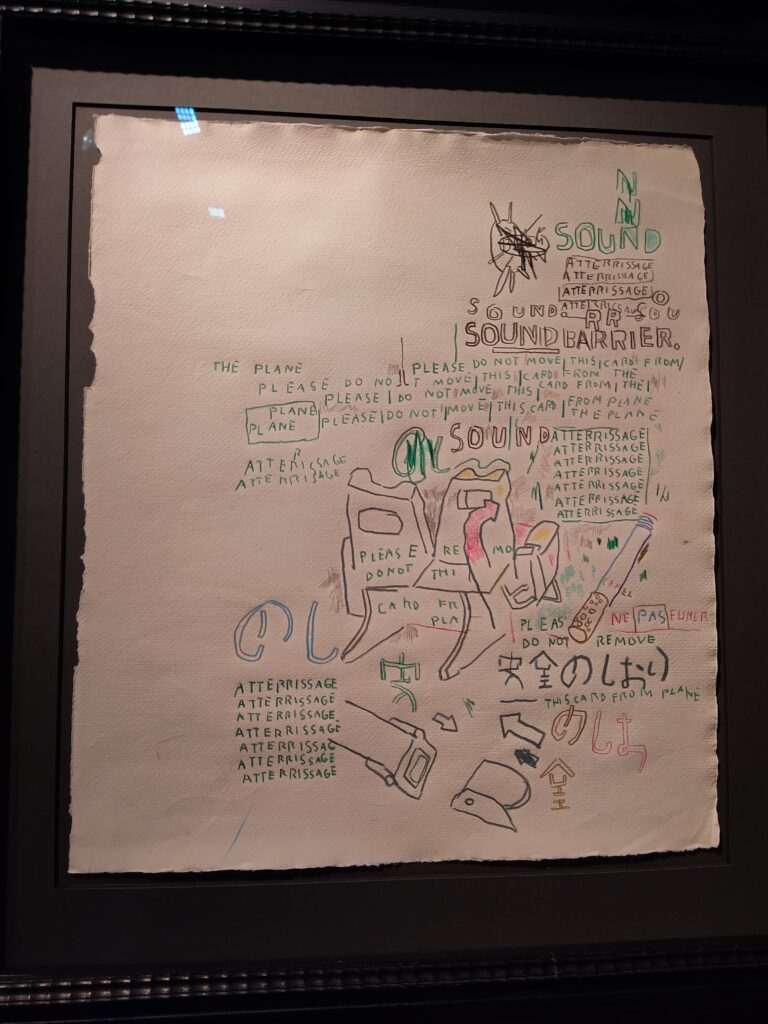 N
N
SOUND
ATTERRISSAGE
ATTERRISSAGE
ATTERRISSAGE
SOUND. RR SOU
SOUND BARRIER.
THE PLANE PLEASE DO NOT MOVE THIS CARD FROM
PLEASE DO NOT MOVE THIS CARD FROM THE
PLEASE DO NOT MOVE THIS CARD FROM THE
PLANE PLEASE DO NOT MOVE THIS CARD FROM PLANE
PLANE THE PLANE
SOUND
ATTERRISSAGE
ATTERRISSAGE
ATTERRISSAGE
ATTERRISSAGE
ATTERRISSAGE
ATTERRISSAGE
ATTERRISSAGE
ATTERRISSAGE
ATTERRISSAGE
PLEASE RE MO
DO NOT THI
CARD FR
PLA
PLEAS NE PAS FUMER
DO NOT REMOVE
のし
安全のしおり
THIS CARD FROM PLANE
のしは
全
ATTERRISSAGE
ATTERRISSAGE
ATTERRISSAGE
ATTERRISSAGE
ATTERRISSAG
ATTERRISSAGE
ATTERRISSAGE